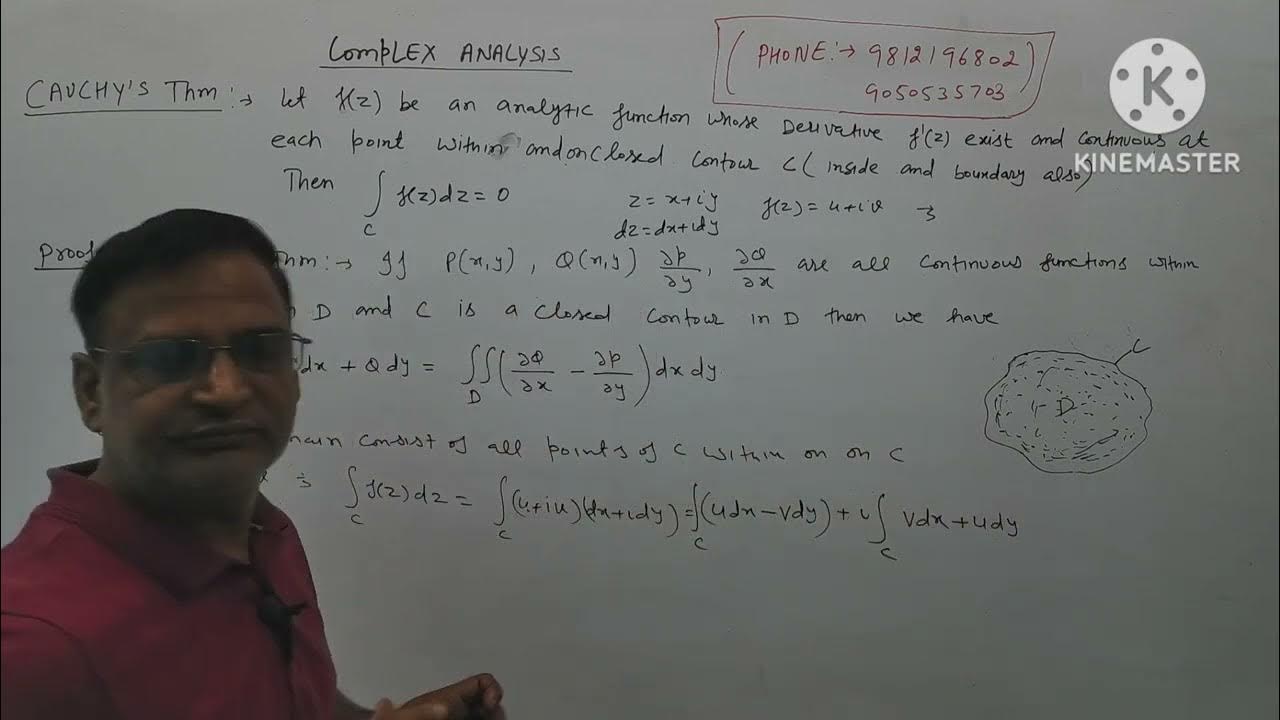 COMPLEX ANALYSIS
(PHONE:→ 9812196802)
9050535703
K
KINEMASTER
CAUCHY'S Thm:→ Let f(z) be an analytic function whose Derivative f'(z) exist and continuous at
each point within and on closed contour C (inside and boundary also)
Then ∫_C f(z)dz = 0 z = x+iy f(z) = u+iv →
dz = dx+idy
Proof Thm:→ If P(x,y), Q(x,y) ∂P/∂y, ∂Q/∂x are all continuous functions within
D and C is a closed contour in D then we have
dx + Q dy = ∬_D (∂Q/∂x − ∂P/∂y) dx dy
C
D
consist of all points of C within on on C
∫_C f(z) dz = ∫_C (u+iu)(dx+idy) = ∫_C (udx − vdy) + i ∫_C vdx + udy